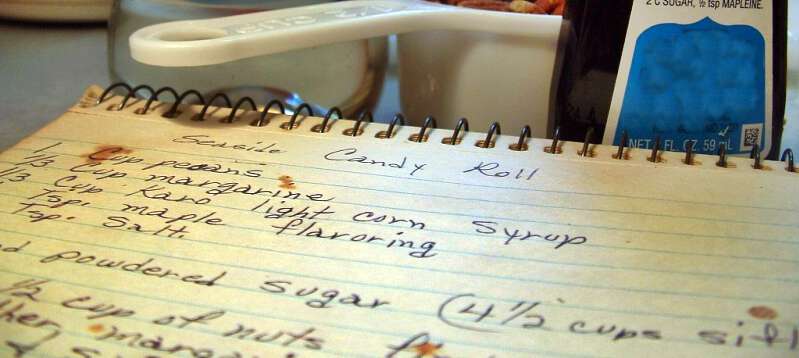 2 C SUGAR, ½ tsp MAPLEINE.
NET FL. OZ 59 mL
CUP
Seaside Candy Roll
1 Cup pecans
1/3 Cup margarine
1/3 Cup Karo light corn syrup
Tsp. maple flavoring
Tsp. Salt.
powdered sugar (4 1/2 cups sift
1/2 cup of nuts